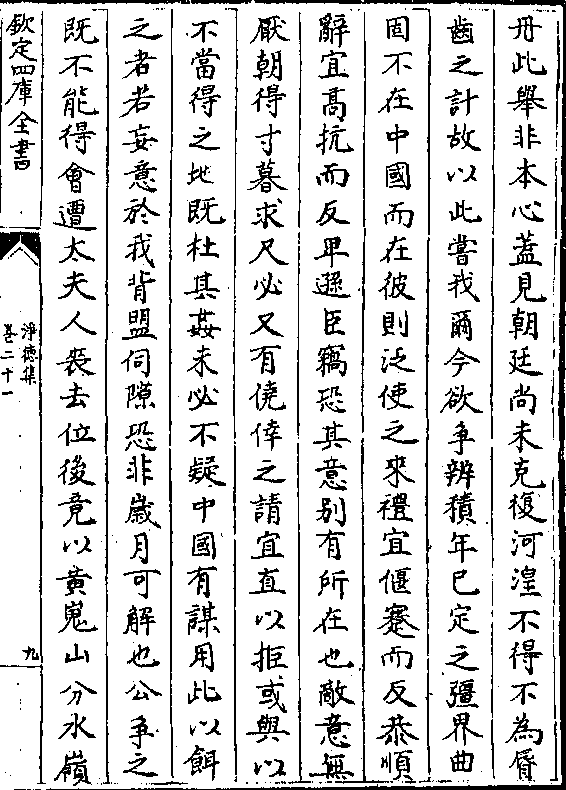 丹此舉非本心蓋見朝廷尚未克復河湟不得不為脣
齒之計故以此嘗我爾今欲爭辨積年已定之疆界曲
固不在中國而在彼則泛使之來禮宜偃蹇而反恭順
辭宜高抗而反卑遜臣竊恐其意别有所在也敵意無
厭朝得寸暮求尺必又有僥倖之請宜直以拒或與以
不當得之地既杜其姦未必不疑中國有謀用此以餌
之者若妄意於我背盟伺隙恐非歲月可解也公爭之
既不能得會遭太夫人喪去位後竟以黄嵬山分水嶺
欽定四庫全書
淨德集
卷二十一
九